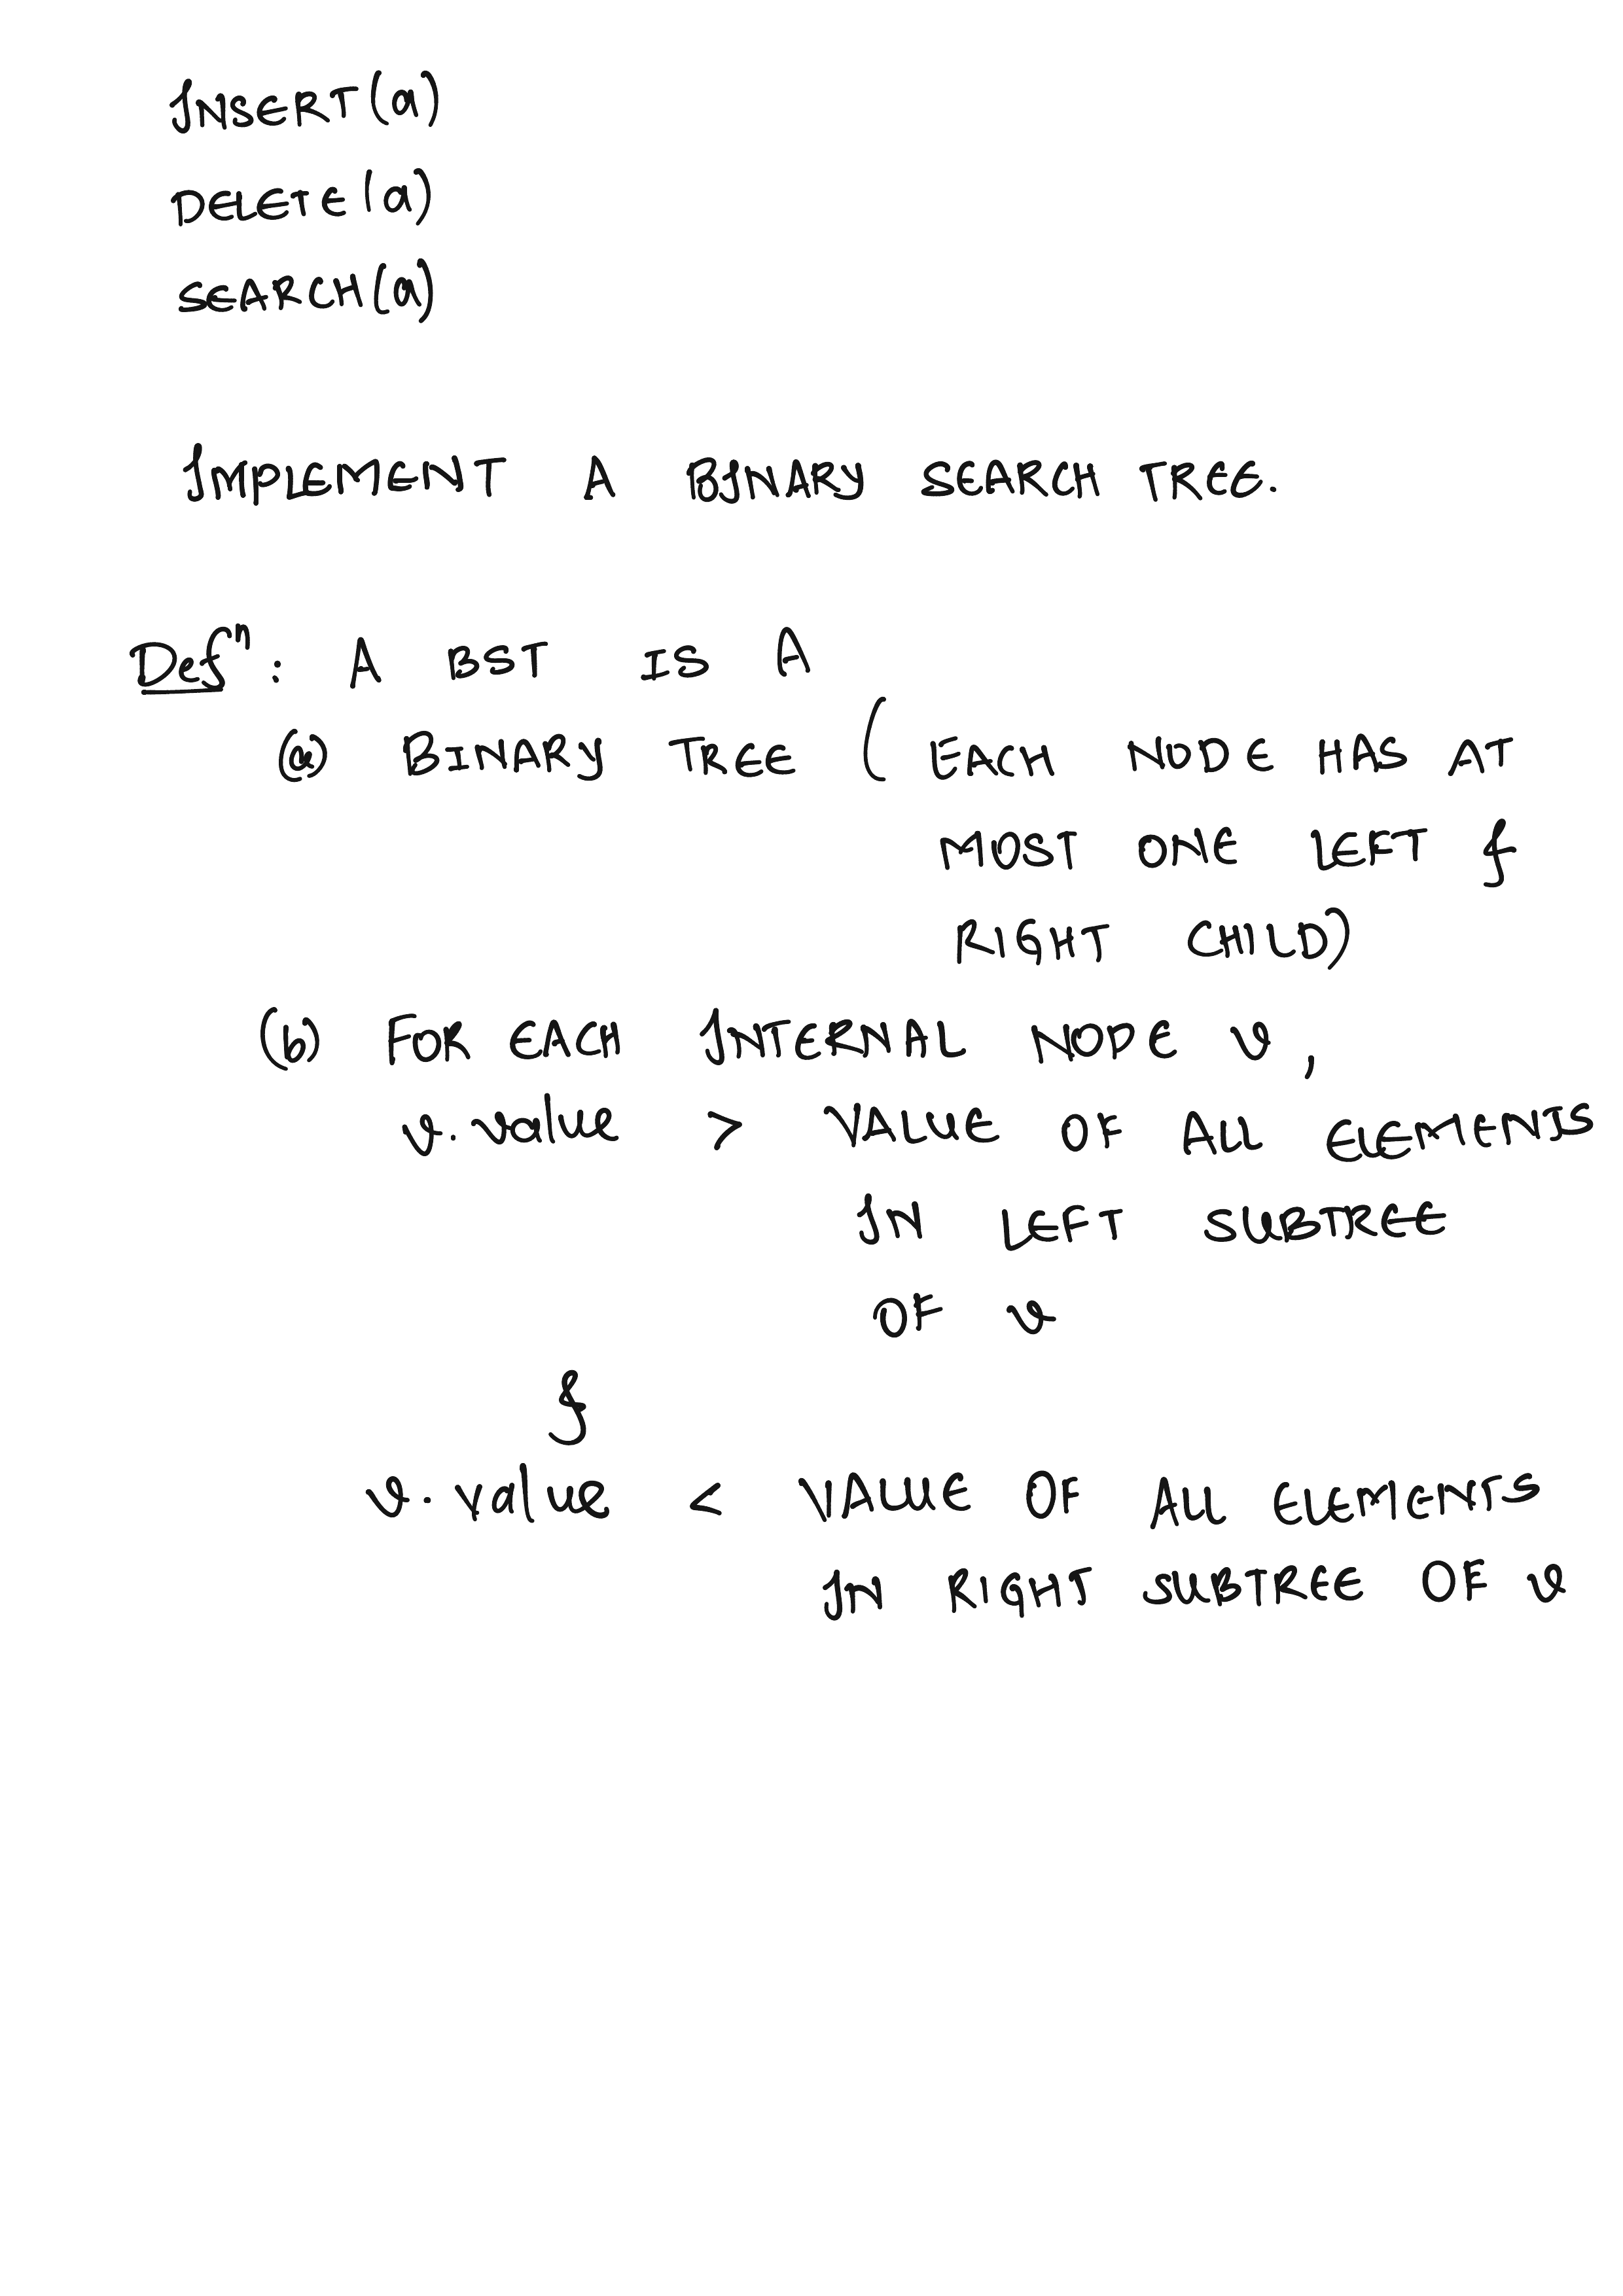 INSERT(a)
DELETE(a)
SEARCH(a)
IMPLEMENT A BINARY SEARCH TREE.
Defⁿ: A BST IS A
(a) BINARY TREE ( EACH NODE HAS AT
MOST ONE LEFT &
RIGHT CHILD)
(b) FOR EACH INTERNAL NODE v,
v.value > VALUE OF ALL ELEMENTS
IN LEFT SUBTREE
OF v
&
v.value < VALUE OF ALL ELEMENTS
IN RIGHT SUBTREE OF v